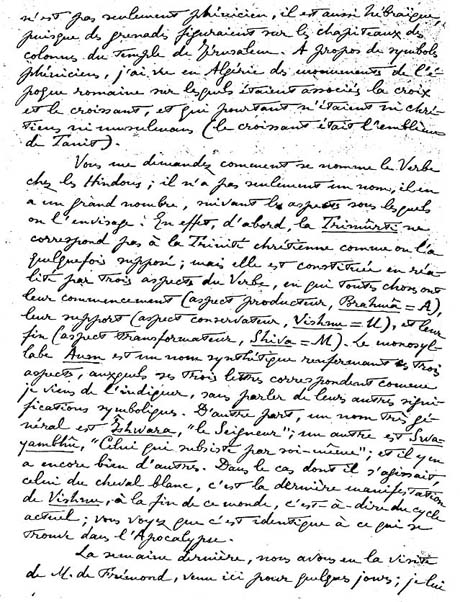 n'est pas seulement phénicien, il est aussi hébraïque,
puisque des grenades figuraient sur les chapiteaux des
colonnes du Temple de Jérusalem. A propos de symboles
phéniciens, j'ai vu en Algérie des monuments de l'é-
poque romaine sur lesquels étaient associés la croix
et le croissant, et qui pourtant n'étaient ni chré-
tiens ni musulmans (le croissant était l'emblème
de Tanit).
Vous me demandez comment se nomme le Verbe
chez les Hindous ; il n'a pas seulement un nom, il en
a un grand nombre, suivant les aspects sous lesquels
on l'envisage. En effet, d'abord, la Trimûrti ne
correspond pas à la Trinité chrétienne comme on l'a
quelquefois supposé ; mais elle est constituée en réa-
lité par trois aspects du Verbe, en qui toutes choses ont
leur commencement (aspect producteur, Brahmâ = A),
leur support (aspect conservateur, Vishnu = U), et leur
fin (aspect transformateur, Shiva = M). Le monosyl-
labe Aum est un nom synthétique renfermant ces trois
aspects, auxquels ses trois lettres correspondent comme
je viens de l'indiquer, sans parler de leurs autres signi-
fications symboliques. D'autre part, un nom très gé-
néral est Îshwara, "le Seigneur" ; un autre est Swa-
yambhû, "Celui qui subsiste par soi-même" ; et il y en
a encore bien d'autres. Dans le cas dont il s'agissait,
celui du cheval blanc, c'est la dernière manifestation
de Vishnu, à la fin de ce monde, c'est-à-dire du cycle
actuel ; vous voyez que c'est identique à ce qui se
trouve dans l'Apocalypse.
La semaine dernière, nous avons eu la visite
de M. de Frémond, venu ici pour quelques jours ; je lui